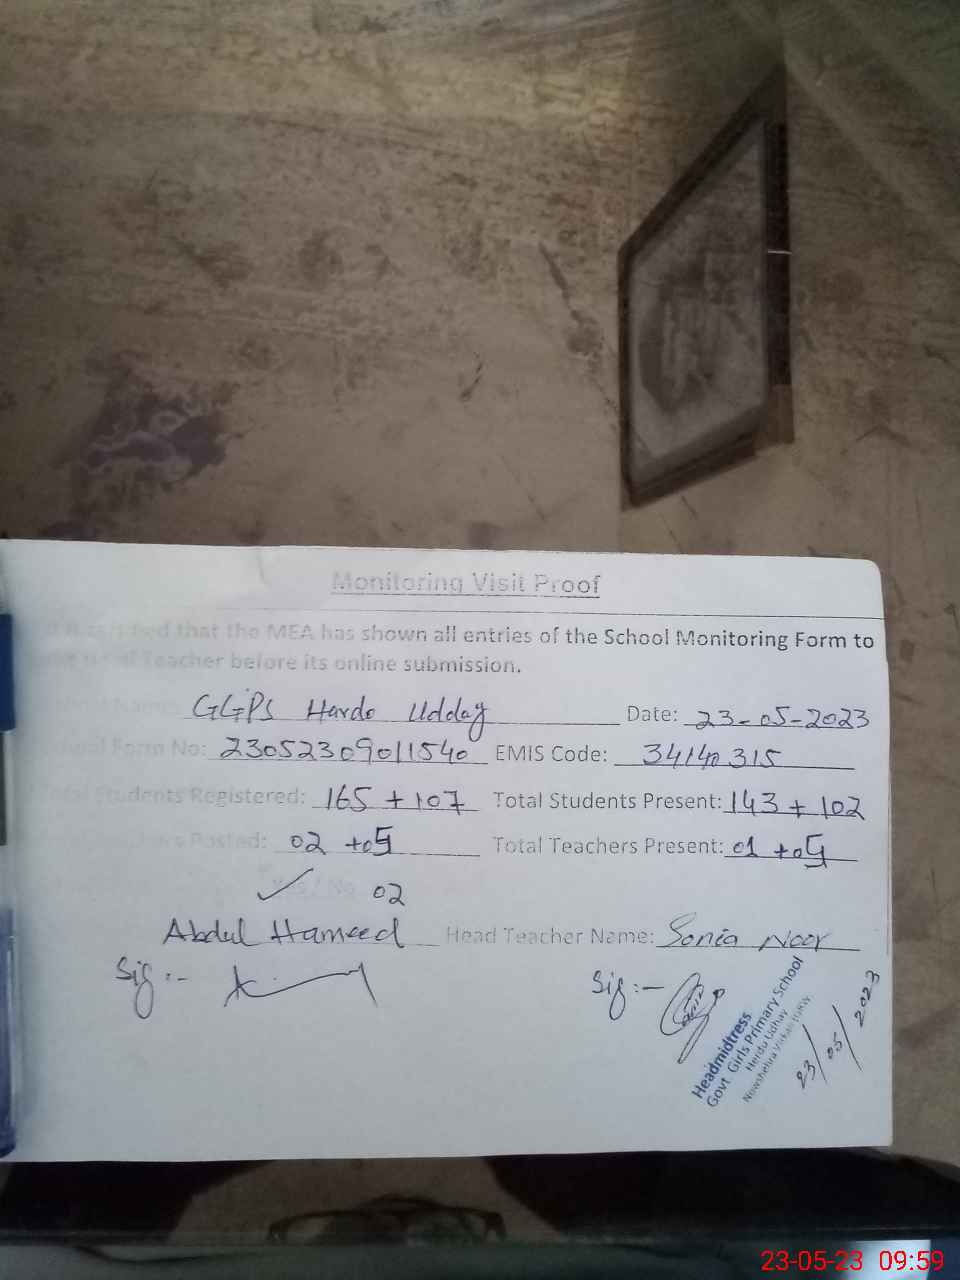 Monitoring Visit Proof
that the MEA has shown all entries of the School Monitoring Form to
Teacher before its online submission.
GGPS Hardo Udday Date: 23-05-2023
Form No: 23052309011540 EMIS Code: 34140315
Total Students Registered: 165 + 107 Total Students Present: 143 + 102
Posted: 02 +05 Total Teachers Present: 01 +05
✓ Yes / No 02
Abdul Hameed Head Teacher Name: Sonia Noor
Sig :- Sig :-
Headmidtress
Govt. Girls Primary School
Herdu Udhay
Nowshehra Virkan
23/05/2023
23-05-23 09:59